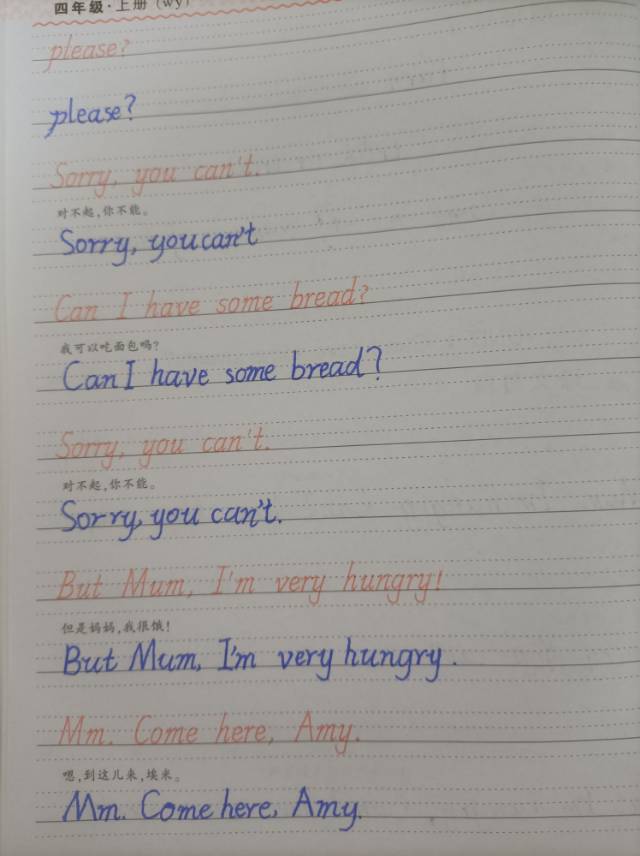 四年级·上册（WY）
please?
please?
Sorry, you can't.
对不起,你不能。
Sorry, you can't
Can I have some bread?
我可以吃面包吗?
Can I have some bread?
Sorry, you can't.
对不起,你不能。
Sorry, you can't.
But Mum, I'm very hungry!
但是妈妈,我很饿!
But Mum, I'm very hungry.
Mm. Come here, Amy.
嗯,到这儿来,埃米。
Mm. Come here, Amy.